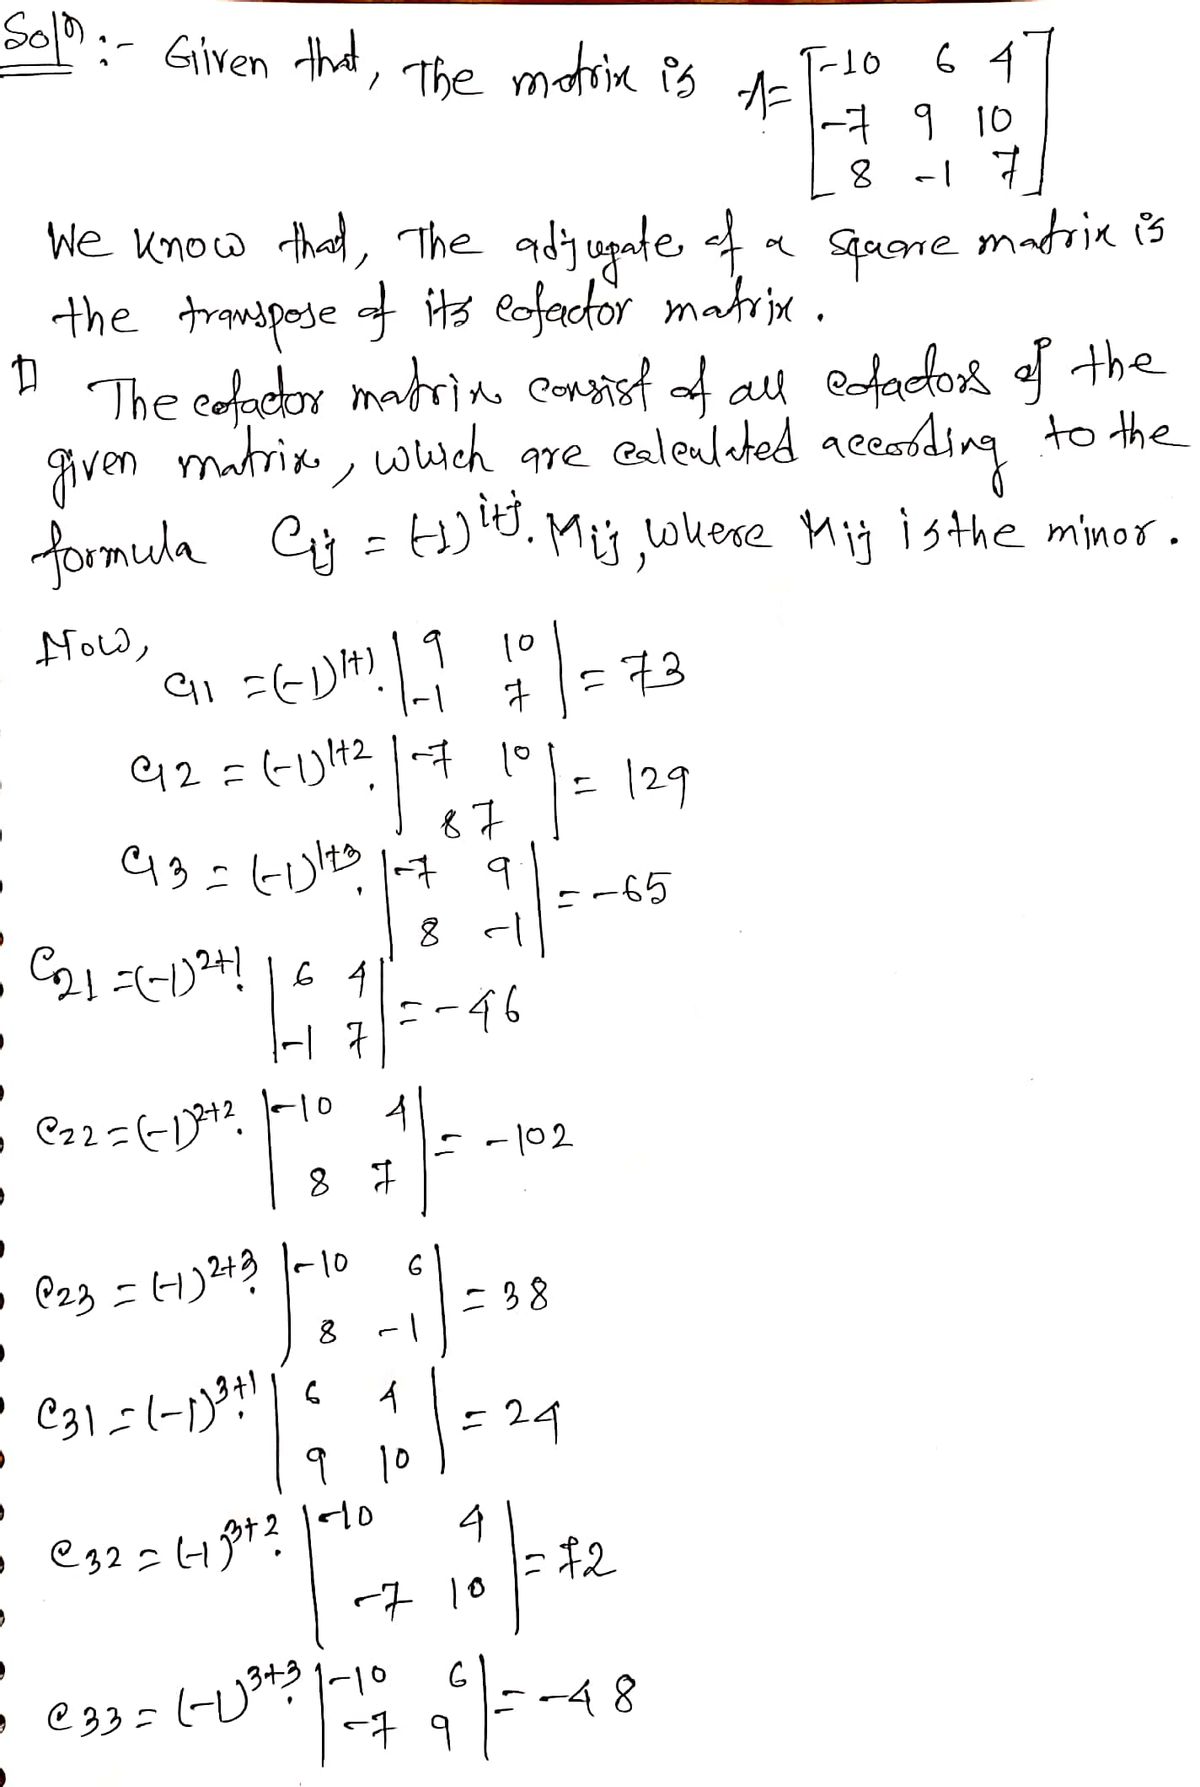 Soln :- Giiven that, The matrix is A = [-10 6 4
-7 9 10
8 -1 7]
We know that, The adjugate of a square matrix is
the transpose of its cofactor matrix.
The cofactor matrix consist of all cofactors of the
given matrix, which are calculated according to the
formula Cij = (-1)^i+j . Mij, where Mij is the minor.
Now,
C11 = (-1)^1+1 . |9 10
-1 7| = 73
C12 = (-1)^1+2 . |-7 10
8 7| = 129
C13 = (-1)^1+3 . |-7 9
8 -1| = -65
C21 = (-1)^2+1 . |6 4
-1 7| = -46
C22 = (-1)^2+2 . |-10 4
8 7| = -102
C23 = (-1)^2+3 . |-10 6
8 -1| = 38
C31 = (-1)^3+1 . |6 4
9 10| = 24
C32 = (-1)^3+2 . |-10 4
-7 10| = 72
C33 = (-1)^3+3 . |-10 6
-7 9| = -48